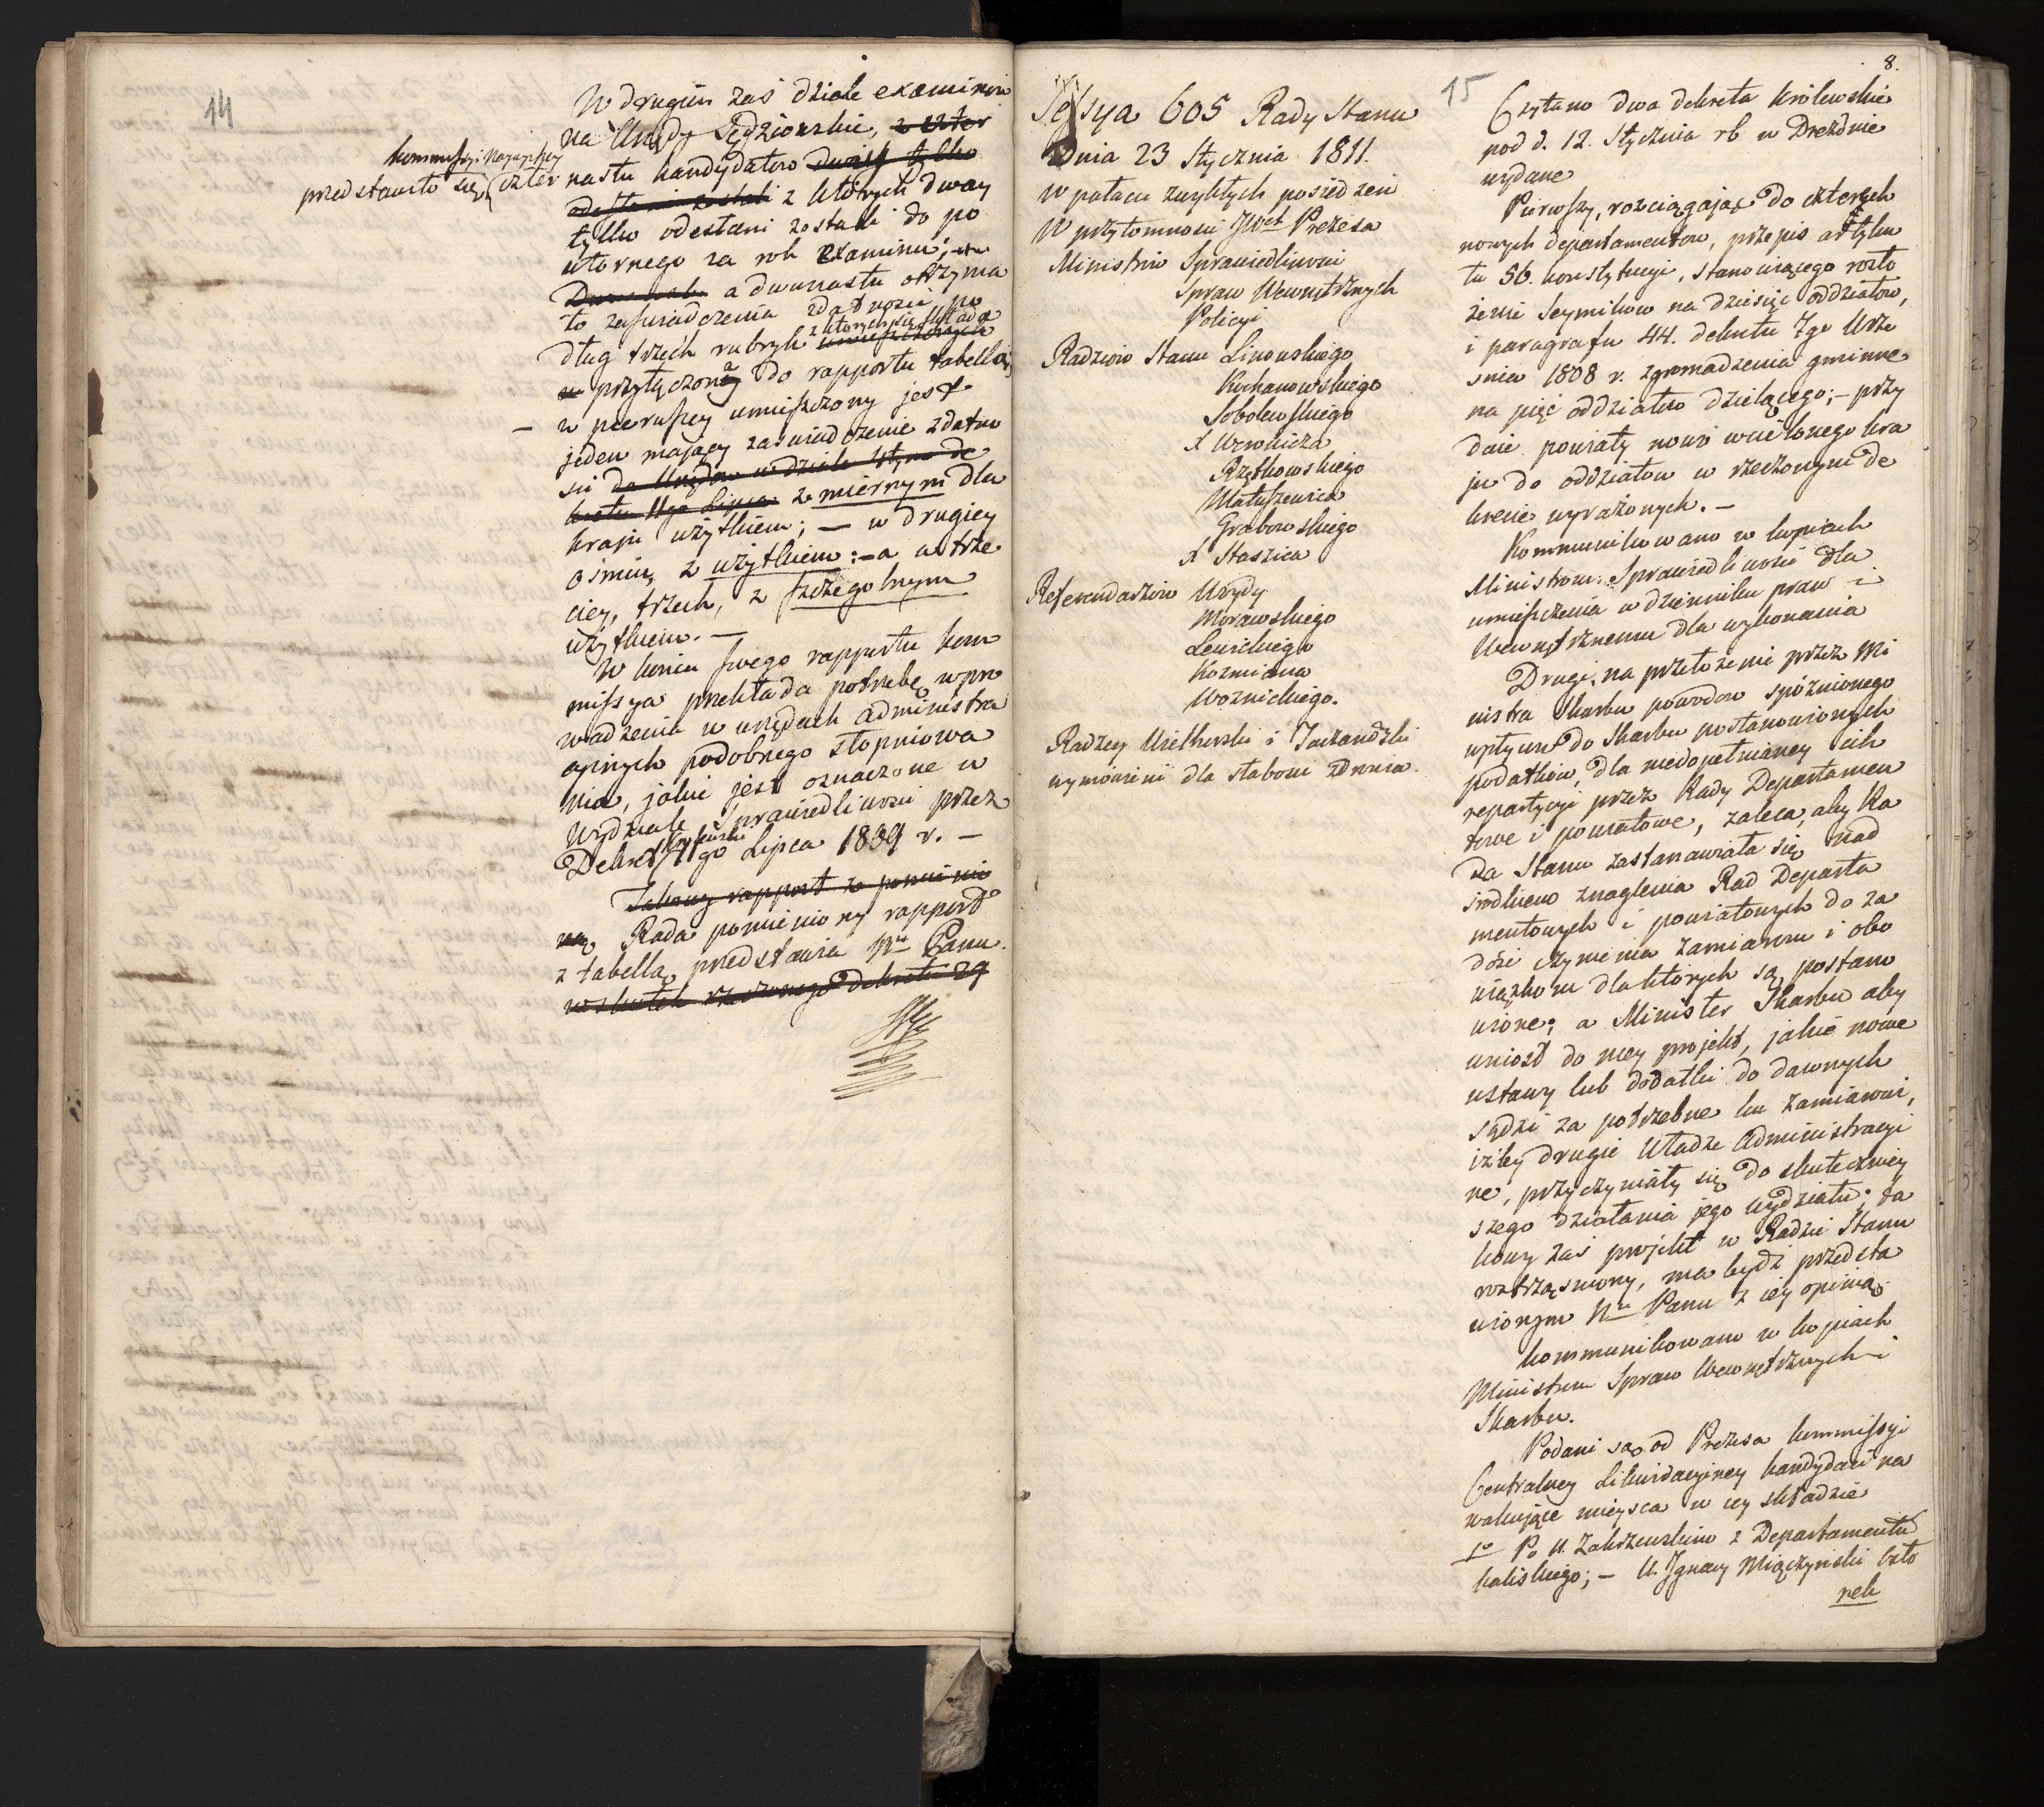 14
W drugim zaś dziale examinu
na Urzędy Sędziowskie, z czter
kommissyi Naywyższey
przedstawiło się czter nastu kandydatow dwóch tylko
odesłani zostali z których dway
tylko odesłani zostali do po
wtornego za rok Examinu;
a dwunastu otrzyma
to zaświadczenia zdatności po
dług trzech rubryk z których się składa
umieszczonych
przyłączona do rapportu tabella;
– w pierwszey umieszczony jest
jeden maiący zaświadczenie zdatno
ści do Urzędow w dziale IItym de
kretu IIgo Lipca z miernym dla
kraju użytkiem; – w drugiey
ośmiu, z użytkiem: – a w trze
ciey, trzech, z szczegolnym
użytkiem. –
W końcu swego rapportu kom
missya przekłada potrzebę wpro
wadzenia w urzędach administra
cyinych podobnego stopniowa
nia, jakie jest oznaczone w
Wydziale Sprawiedliwości przez
Dekret Krolewski 11go Lipca 1809 r. –
Takowy rapport z pomienio
ną Rada pomieniony rapport
z tabellą przedstawia Nu Panu.
w skutek rzeczonego dekretu 29
8.
15
Sessya 605 Rady Stanu
Dnia 23 Stycznia 1811.
w pałacu zwykłych posiedzeń
W przytomności JWch Prezesa
Ministrow Sprawiedliwości
Spraw Wewnętrznych
Policyi
Radzcow Stanu Linowskiego
Kochanowskiego
Sobolewskiego
X Woronicza
Rzętkowskiego
Matuszewica
Grabowskiego
X Staszica
Referendarzow Ury
Morawskiego
Lewickiego
Kozmiana
Woznickiego.
Radzcy Wielhorski i
wymowieni dla słabości zdrowia.
Czytano dwa dekreta Krolewskie
pod d. 12. Stycznia rb w Dreznie
wydane
Pierwszy, rozciągaiąc do czterech
nowych departamentow, przepis artyku
łu 56. konstytucyi, stanowiącego rozło
żenie Seymikow na dziesięć oddziałow,
i paragrafu 44. dekretu 7go Wrze
śnia 1808 r. zgromadzenia gminne
na pięć oddziałow dzielącego; – przy
daie powiaty nowo wcielonego kra
ju do oddziałow w rzeczonym de
krecie wyrażonych. –
Kommunikowano w kopiach
Ministrom: Sprawiedliwości dla
umieszczenia w dzienniku praw i
Wewnętrznemu dla wykonania
Drugi, na przełożenie przez Mi
nistra Skarbu powodow spóźnionego
wpływu do Skarbu postanowionych
podatków, dla niedopełnioney ich
repartycyi przez Rady Departamen
towe i powiatowe, zaleca, aby Ra
da Stanu zastanawiała się nad
środkiem znaglenia Rad Departa
mentowych i powiatowych do za
dość czynienia zamiarom i obo
wiązkom dla których są postano
wione; a Minister Skarbu aby
wniosł do niey projekt, jakie nowe
ustawy lub dodatki do dawnych
sądzi za potrzebne ku zamiarowi,
iżby drugie Władze Administracyi
ne, przyczyniały się do skuteczniey
szego działania jego wydziału; ta
kowy zaś projekt w Radzie Stanu
roztrząśniony, ma bydź przedsta
wionym Nu Panu z iey opinią.
kommunikowano w kopiach
Ministrom Spraw Wewnętrznych i
Skarbu.
Podani są od Prezesa kommissyi
Centralney Likwidacyiney kandydaci na
wakujące mieysca w iey składzie
1o Po U. Zakrzewskim z Departamentu
kaliskiego; – U. Ignacy Miączyński Czło
nek